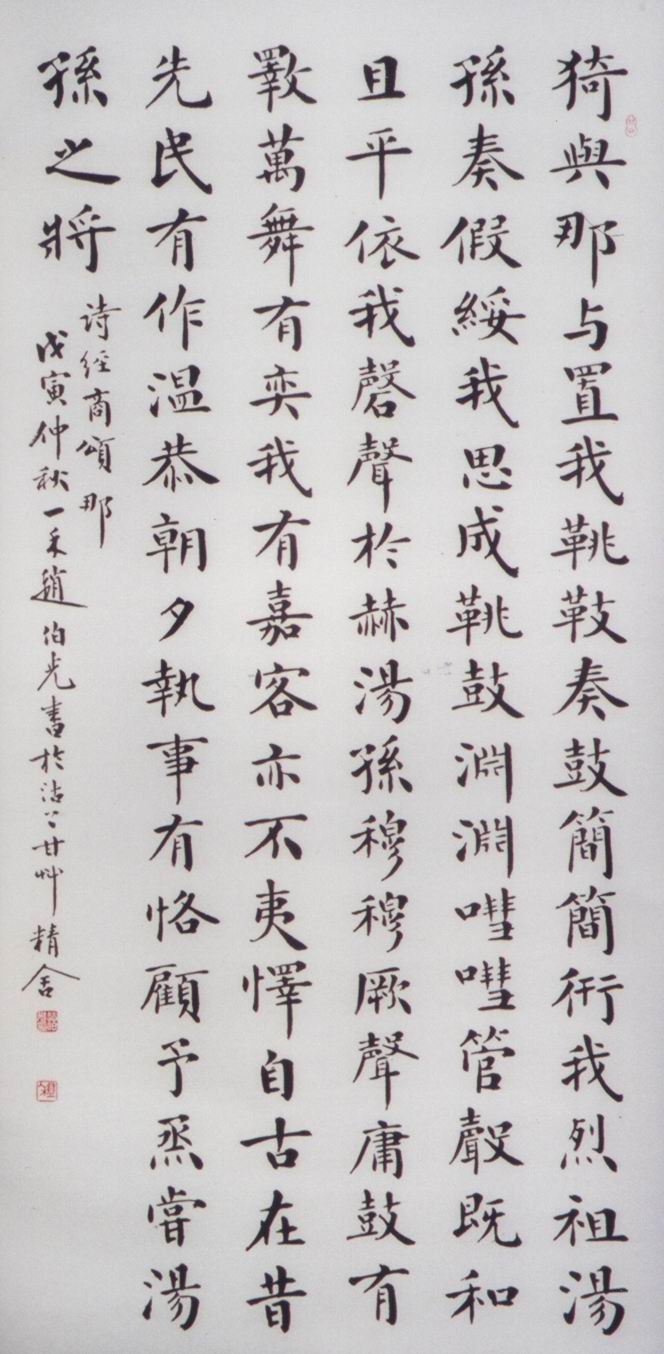 猗與那与置我鞉鼓奏鼓簡簡衎我烈祖湯
孫奏假綏我思成鞉鼓淵淵嘒嘒管聲既和
且平依我磬聲於赫湯孫穆穆厥聲庸鼓有
斁萬舞有奕我有嘉客亦不夷懌自古在昔
先民有作温恭朝夕執事有恪顧予烝嘗湯
孫之將
诗經商頌那
戊寅仲秋一禾趙伯光書於沽上甘艸精舍